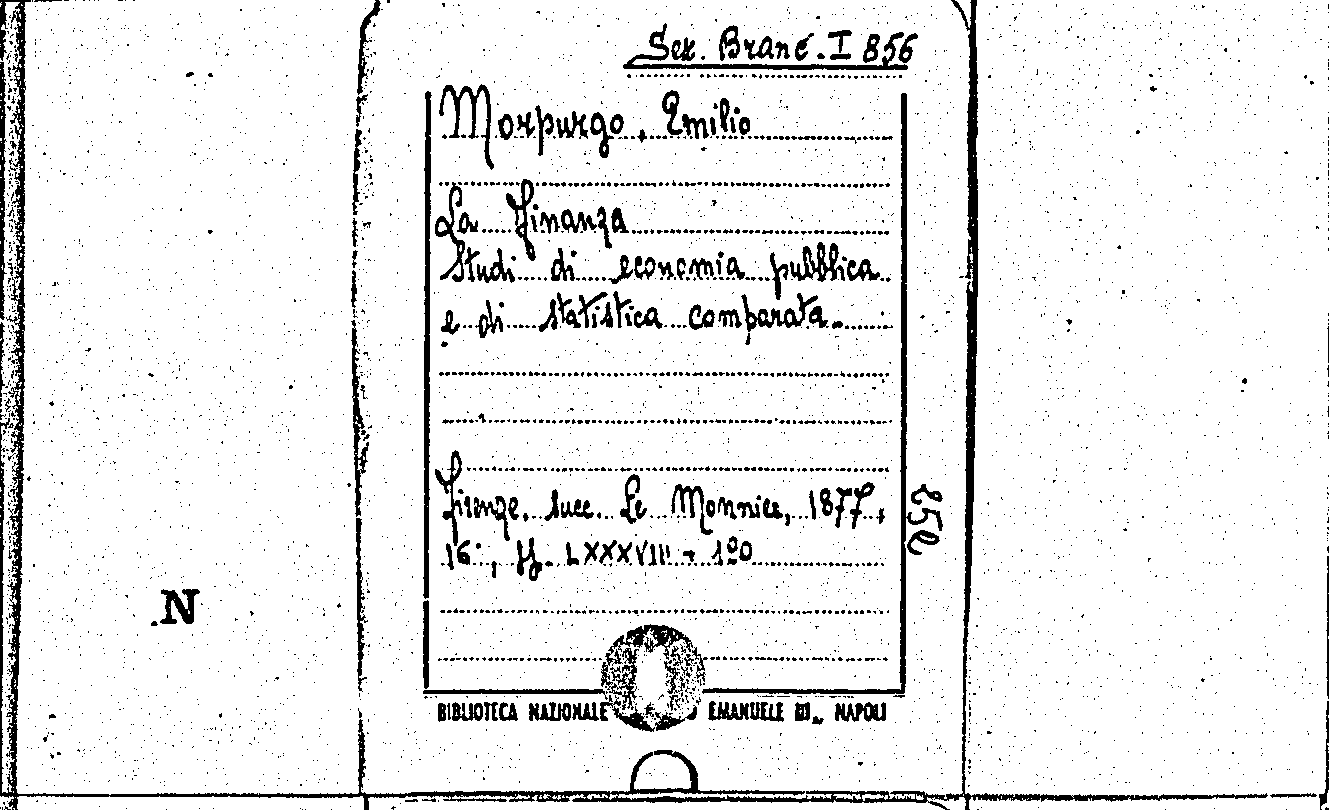 Sez. Branc. I 856
Morpurgo, Emilio
La Finanza
Studi di economia pubblica
e di statistica comparata.
Firenze. Succ. Le Monnier, 1877,
16°, LXXXVIII -
N
BIBLIOTECA NAZIONALE EMANUELE III NAPOLI